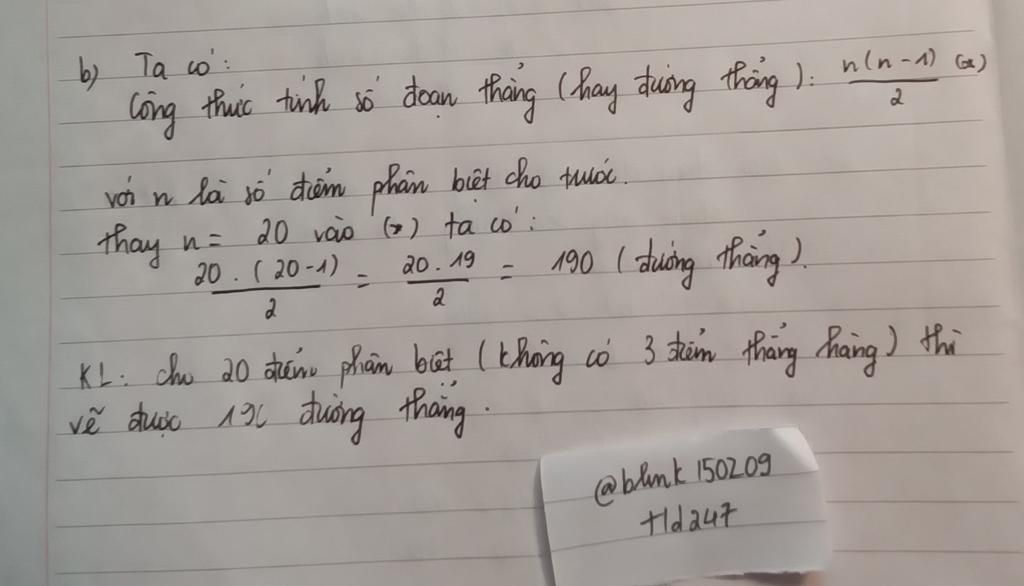 b) Ta có:
Công thức tính số đoạn thẳng (hay đường thẳng): n(n-1)/2 (*)
với n là số điểm phân biệt cho trước.
thay n = 20 vào (*) ta có:
20.(20-1)/2 = 20.19/2 = 190 (đường thẳng).
KL: cho 20 điểm phân biệt (không có 3 điểm thẳng hàng) thì
vẽ được 190 đường thẳng.
@blink150209
tld247